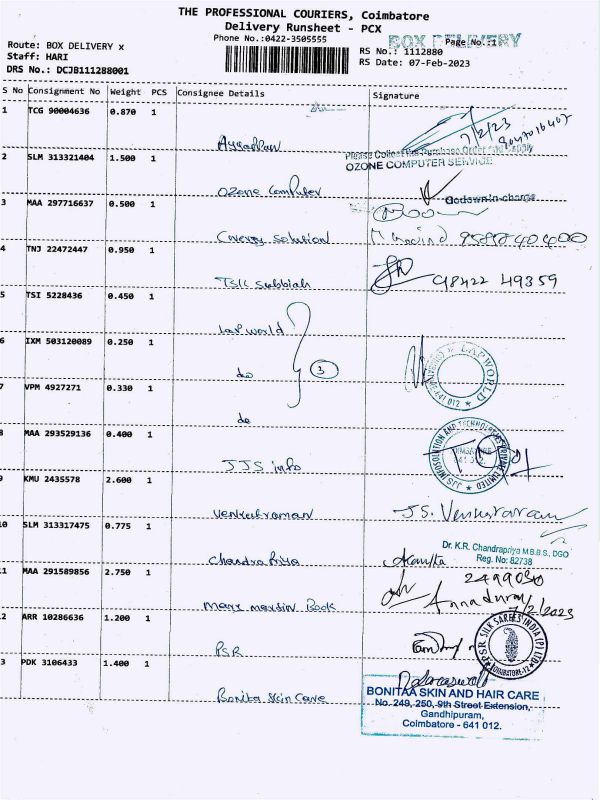 THE PROFESSIONAL COURIERS, Coimbatore
Delivery Runsheet - PCX
Phone No.:0422-3505555
BOX DELIVERY
Page No.:1
Route: BOX DELIVERY x
Staff: HARI
DRS No.: DCJB111288001
RS No.: 1112880
RS Date: 07-Feb-2023
S No Consignment No Weight PCS Consignee Details Signature
1 TCG 90004636 0.870 1
7/2/23
2 SLM 313321404 1.500 1
Please Collect the Purchase Order and Supply
OZONE COMPUTER SERVICE
Ozone Computer
Godown-in-charge
3 MAA 297716637 0.500 1
Cnergy solution
4 TNJ 22472447 0.950 1
TSK Subbiah
98422 49359
5 TSI 5228436 0.450 1
Lap world
6 IXM 503120089 0.250 1
do
3
LAPWORLD
641 012
7 VPM 4927271 0.330 1
do
8 MAA 293529136 0.400 1
JJS info
JJS INFORMATION AND TECHNOLOGIES PRIVATE LIMITED
9 KMU 2435578 2.600 1
Venkatraman
J.S. Venkataraman
10 SLM 313317475 0.775 1
Chandra Priya
Dr. K.R. Chandrapriya M.B.B.S., DGO
Reg. No: 82738
11 MAA 291589856 2.750 1
2499030
Annadurai
7/2/2023
Mary martin Book
12 ARR 10286636 1.200 1
PSR
PSR SILK SAREES INDIA (P) LTD
COIMBATORE-12
13 PDK 3106433 1.400 1
Bonita Skin Care
BONITAA SKIN AND HAIR CARE
No. 249, 250, 9th Street Extension,
Gandhipuram,
Coimbatore - 641 012.